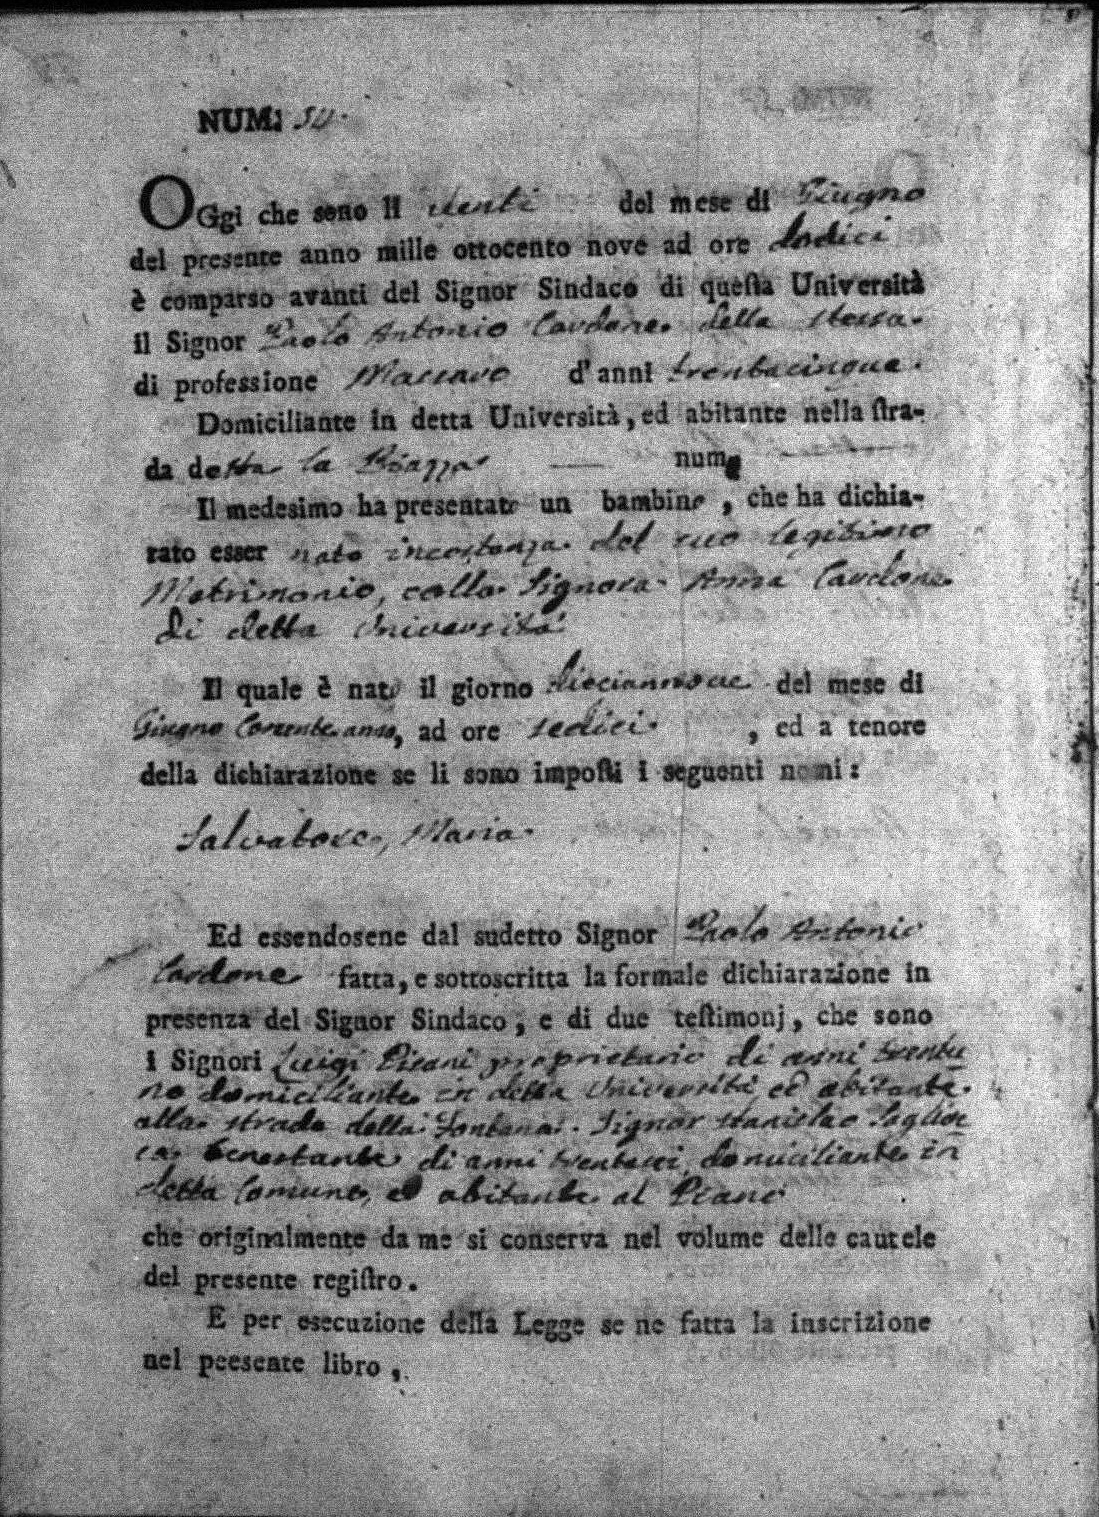 NUM: 50.
OGgi che sono li venti del mese di Giugno
del presente anno mille ottocento nove ad ore dodici
è comparso avanti del Signor Sindaco di questa Università
il Signor Paolo Antonio Cardone della stessa.
di professione Massaro d'anni trentacinque.
Domiciliante in detta Università, ed abitante nella stra-
da detta la Piazza — num.
Il medesimo ha presentato un bambino, che ha dichia-
rato esser nato incostanza del suo legitimo
Matrimonio, colla Signora Anna Cardone
di detta Università
Il quale è nato il giorno dieciannove del mese di
Giugno Corrente anno, ad ore sedici. , ed a tenore
della dichiarazione se li sono imposti i seguenti nomi:
Salvatore, Maria.
Ed essendosene dal sudetto Signor Paolo Antonio
Cardone fatta, e sottoscritta la formale dichiarazione in
presenza del Signor Sindaco, e di due testimonj, che sono
i Signori Luigi Pisani proprietario di anni trentu
no domiciliante in detta Università ed abitante
alla strada della Fontana. Signor Stanislao
benestante di anni domiciliante in
detta Comune, ed abitante al Piano
che originalmente da me si conserva nel volume delle cautele
del presente registro.
E per esecuzione della Legge se ne fatta la inscrizione
nel peesente libro,